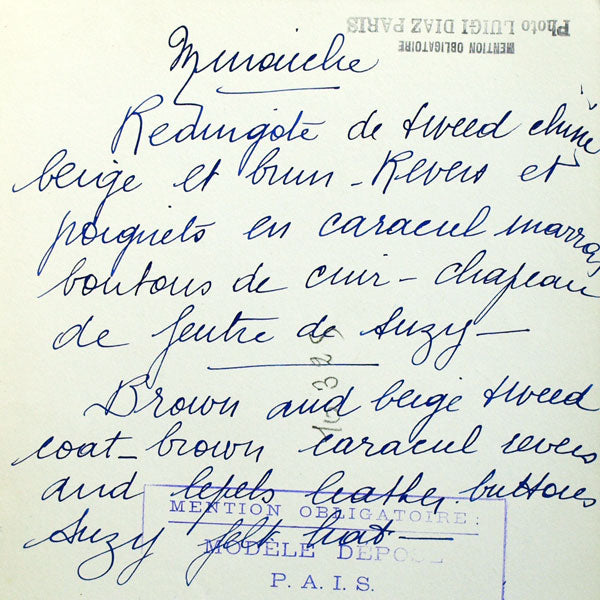 Photo LUIGI DIAZ PARIS
MENTION OBLIGATOIRE
Redingote de tweed chiné
beige et brun - Revers et
poignets en caracul marron
boutons de cuir - chapeau
de feutre de Suzy -
16328
Brown and beige tweed
coat - brown caracul revers
and lepels leather buttons
Suzy felt hat -
MENTION OBLIGATOIRE:
MODÈLE DÉPOSÉ
P.A.I.S.